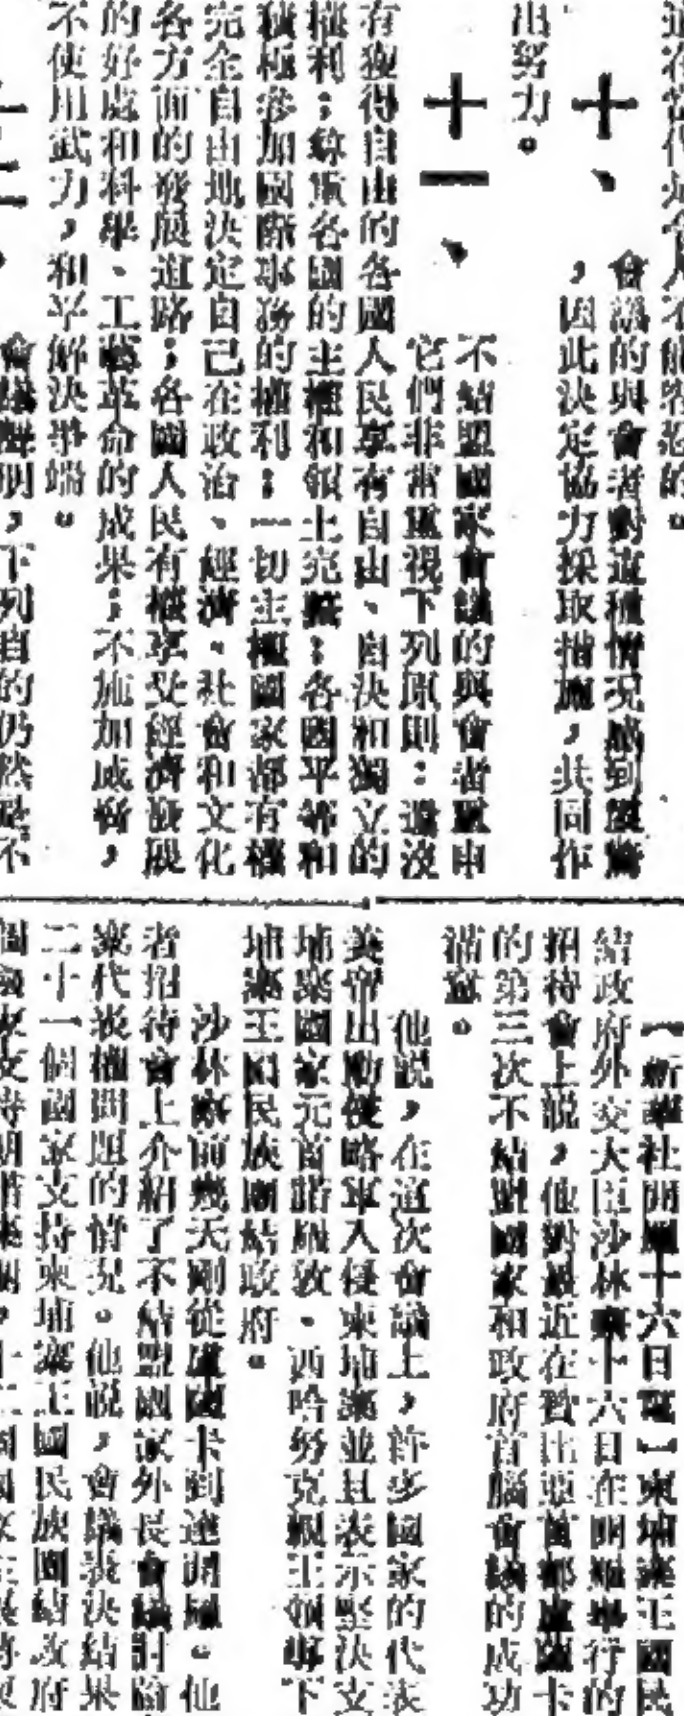 這在當代是令人不能容忍的。
十、
會議的與會者對這種情況感到震驚
，因此決定協力採取措施，共同作
出努力。
十一、
不結盟國家會議的與會者重申
它們非常重視下列原則：還沒
有獲得自由的各國人民享有自由、自決和獨立的
權利；尊重各國的主權和領土完整；各國平等和
積極參加國際事務的權利；一切主權國家都有權
完全自由地決定自己在政治、經濟、社會和文化
各方面的發展道路；各國人民有權享受經濟發展
的好處和科學、工藝革命的成果；不施加威脅，
不使用武力，和平解決爭端。
十二、
會議聲明，下列目的仍然是不
（新華社開羅十六日電）柬埔寨王國民
結政府外交大臣沙林察十六日在開羅舉行的
招待會上說，他對最近在贊比亞首都盧薩卡
的第三次不結盟國家和政府首腦會議的成功
滿意。
他說，在這次會議上，許多國家的代表
美帝出動侵略軍入侵柬埔寨並且表示堅決支
埔寨國家元首諾羅敦·西哈努克親王領導下
埔寨王國民族團結政府。
沙林察前幾天剛從盧薩卡到達開羅。他
者招待會上介紹了不結盟國家外長會議討論
寨代表權問題的情況。他說，會議表決結果
二十一個國家支持柬埔寨王國民族團結政府